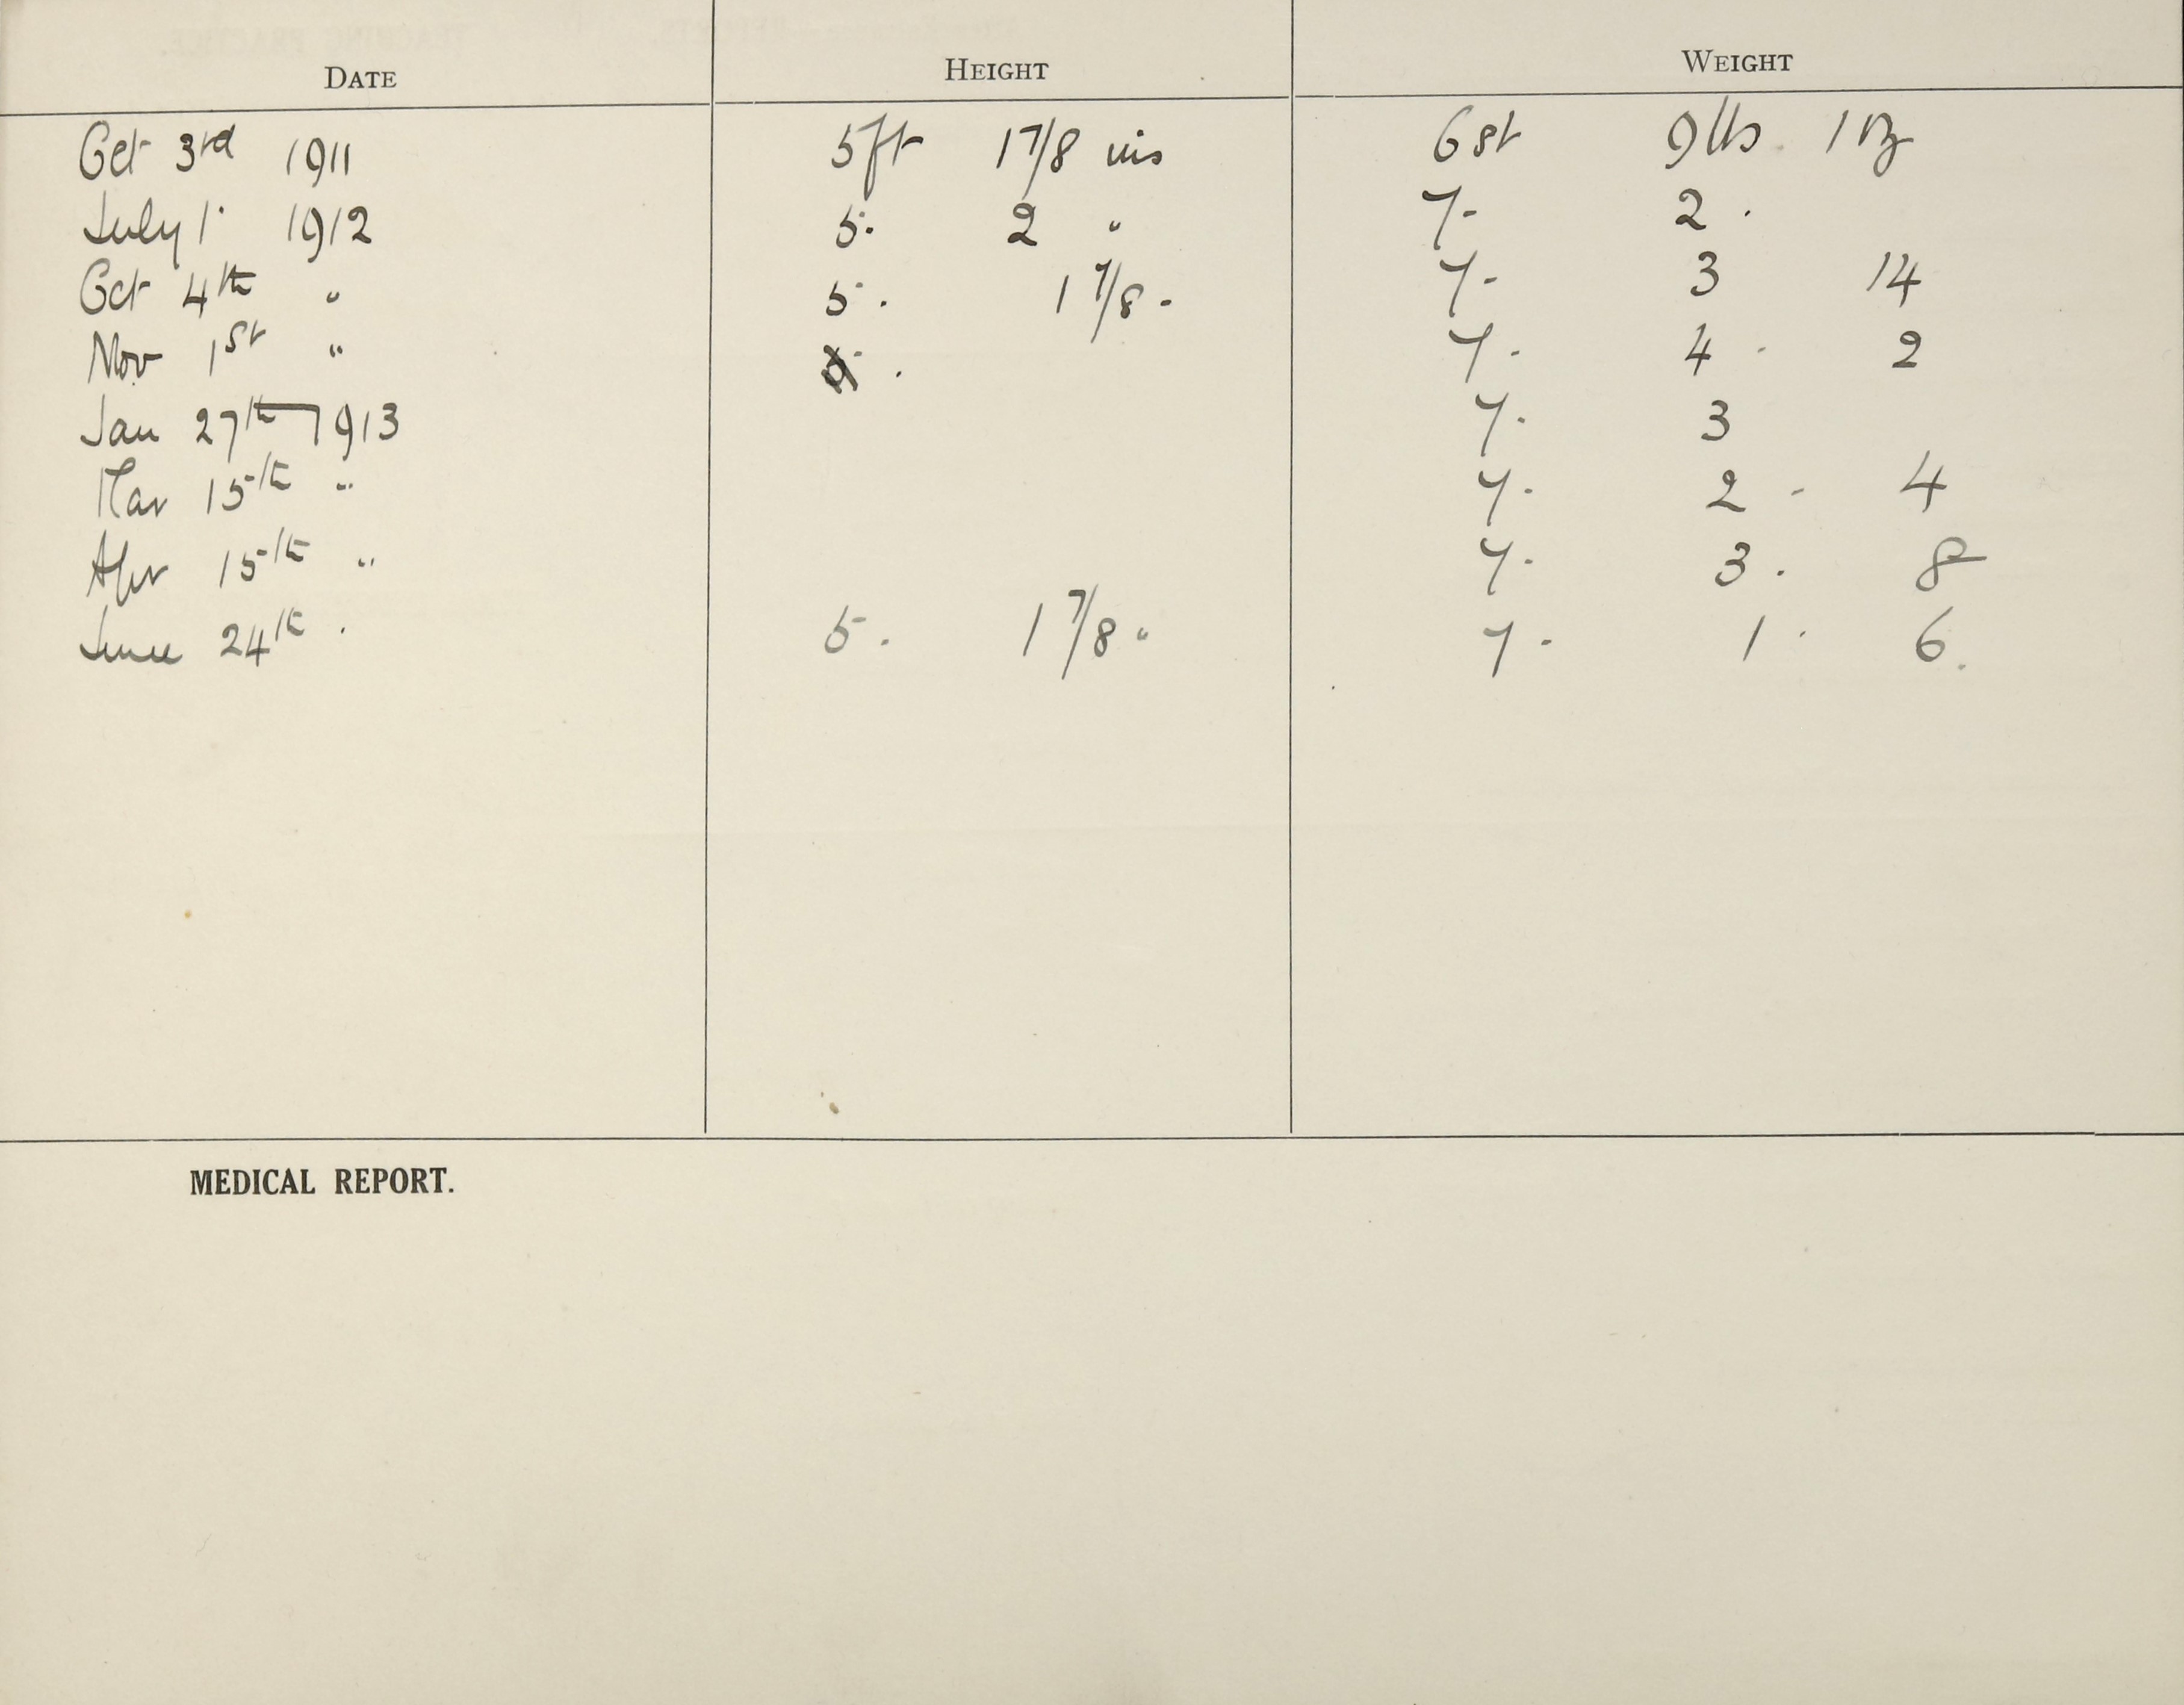 DATE HEIGHT WEIGHT
Oct 3rd 1911 5ft 1 7/8 ins 6st 9lbs 1 oz
July 1. 1912 5. 2 " 7- 2.
Oct 4th " 5. 1 7/8 - 7- 3 14
Nov 1st " 7. 4 - 2
Jan 27th 1913 7. 3
Mar 15th " 7. 2 - 4
Apr 15th " 7. 3. 8
June 24th . 5. 1 7/8 " 7. 1. 6.
MEDICAL REPORT.